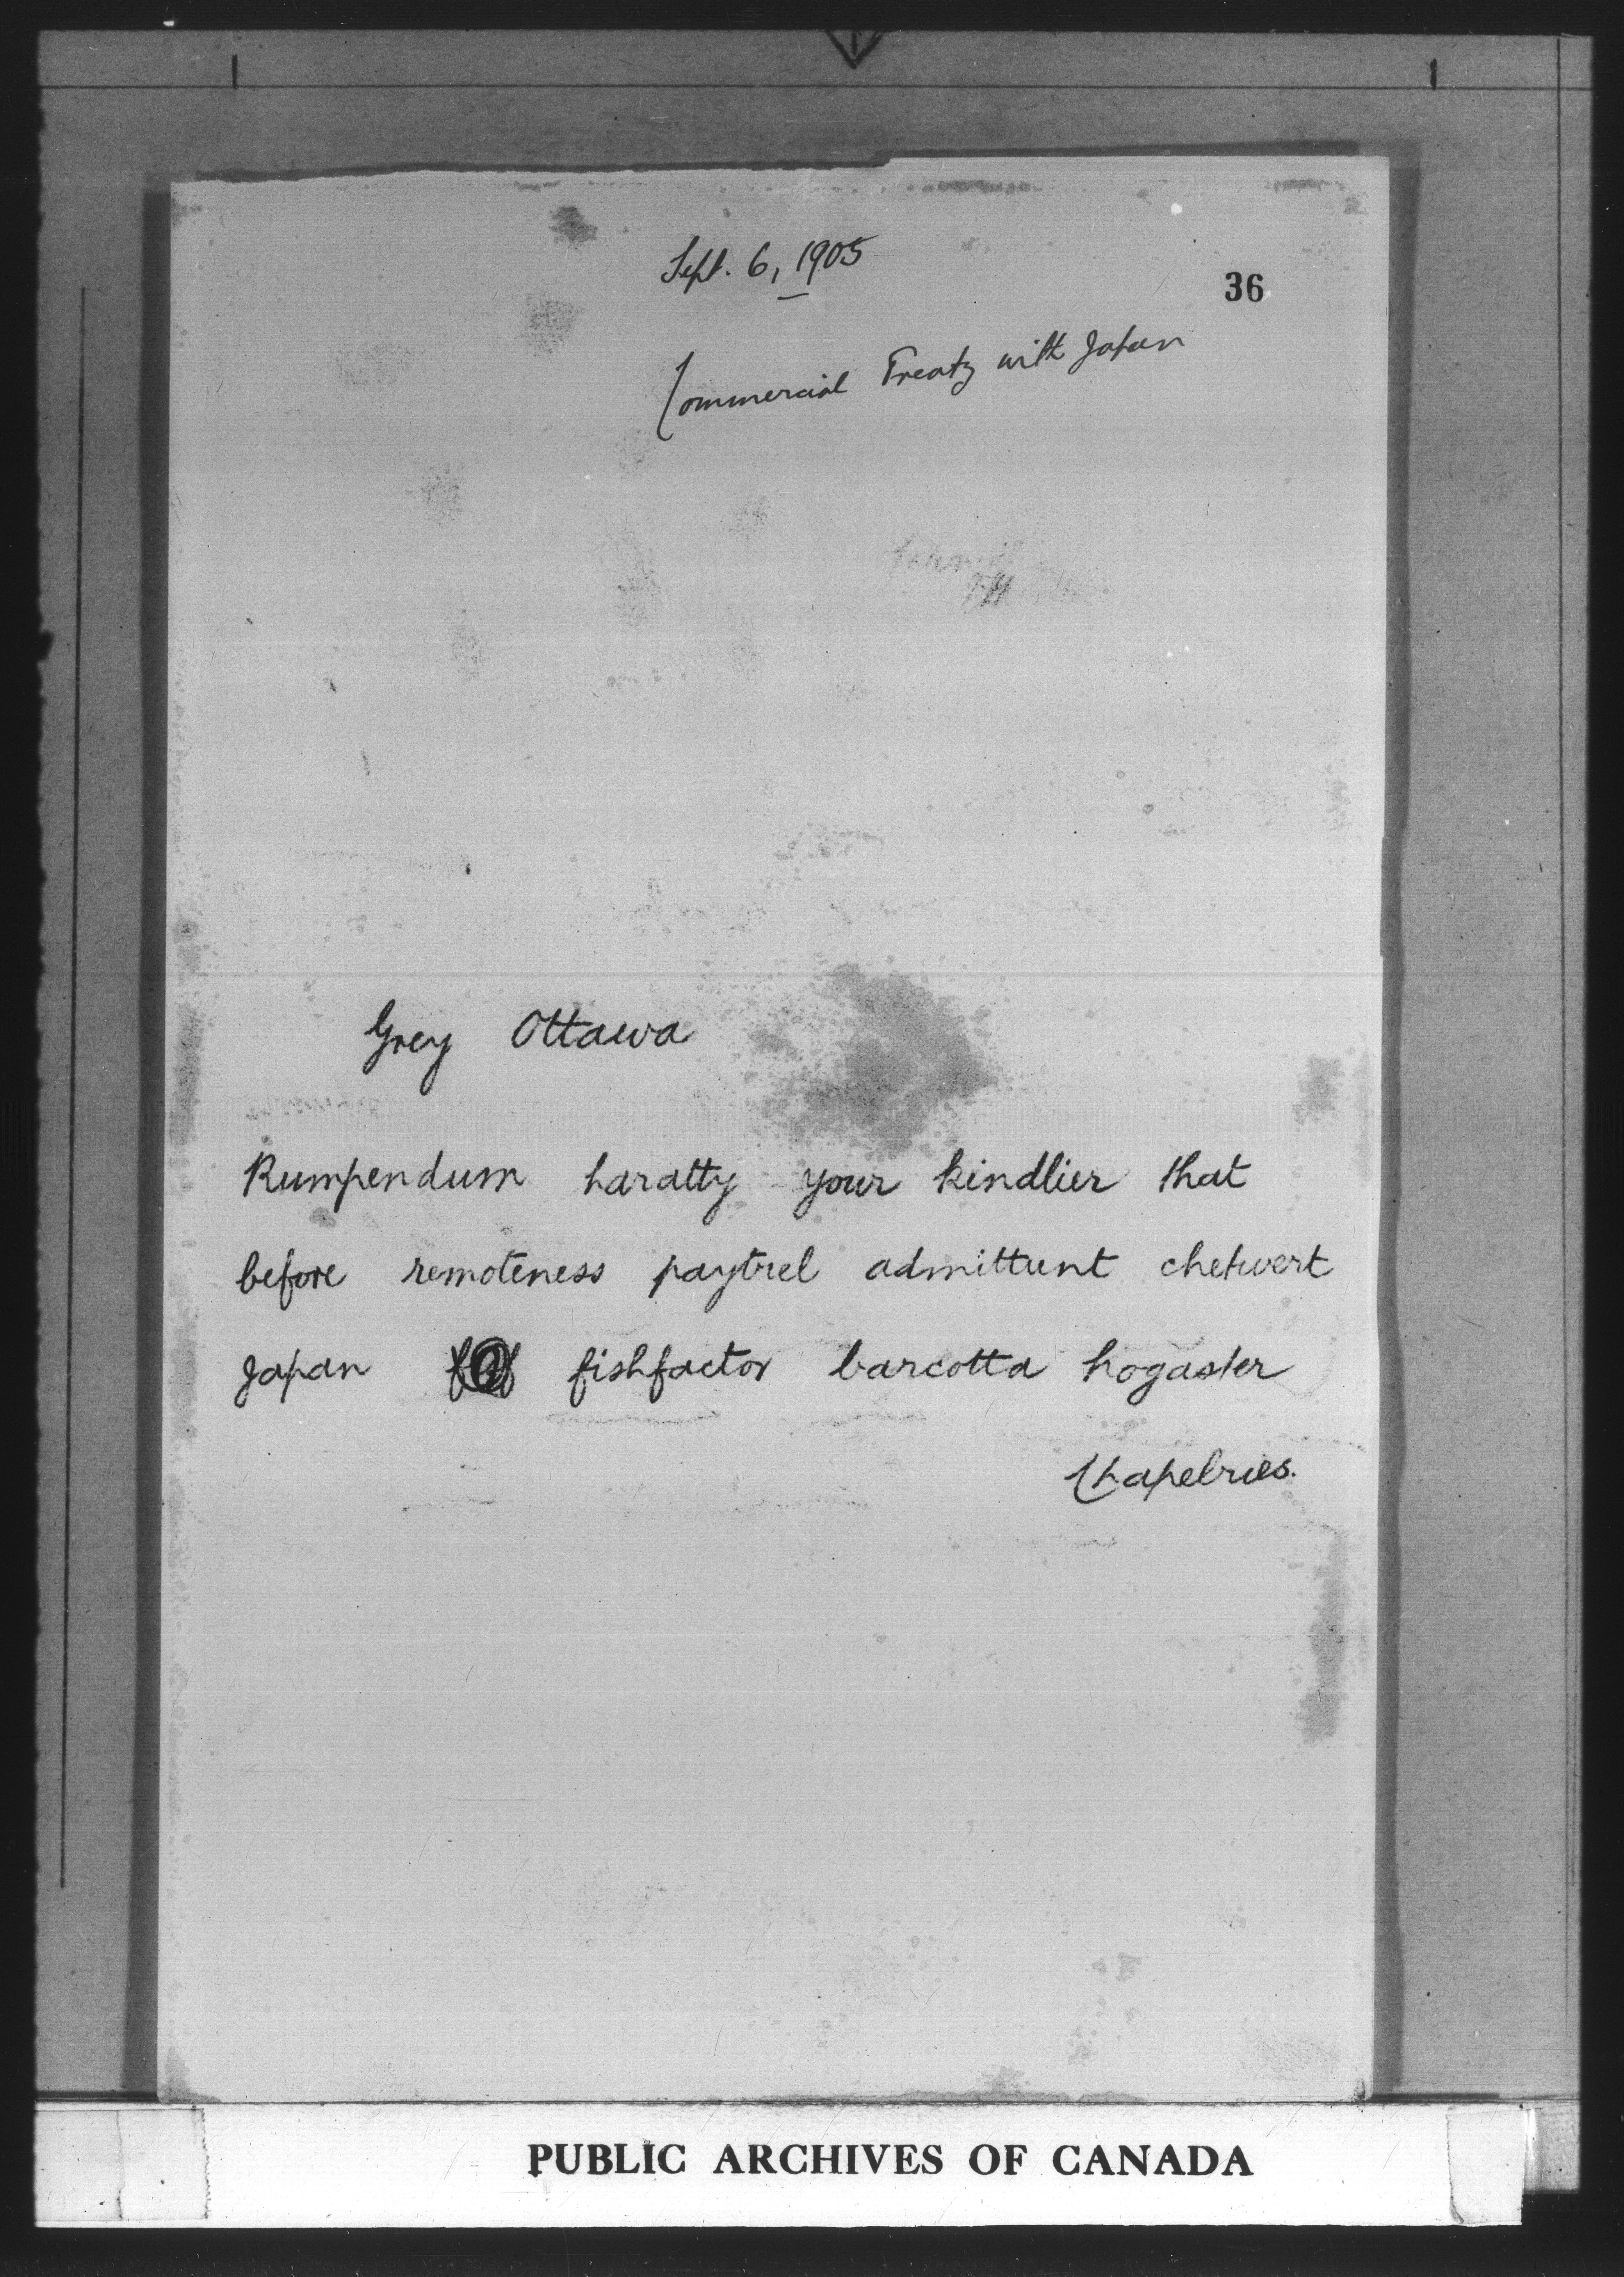 Sept. 6, 1905
36
Commercial Treaty with Japan
Grey Ottawa
Rumpendum haratty your kindlier that
before remoteness paytrel admittunt chetwert
Japan fishfactor barcotta hogaster
Chapelries.
PUBLIC ARCHIVES OF CANADA